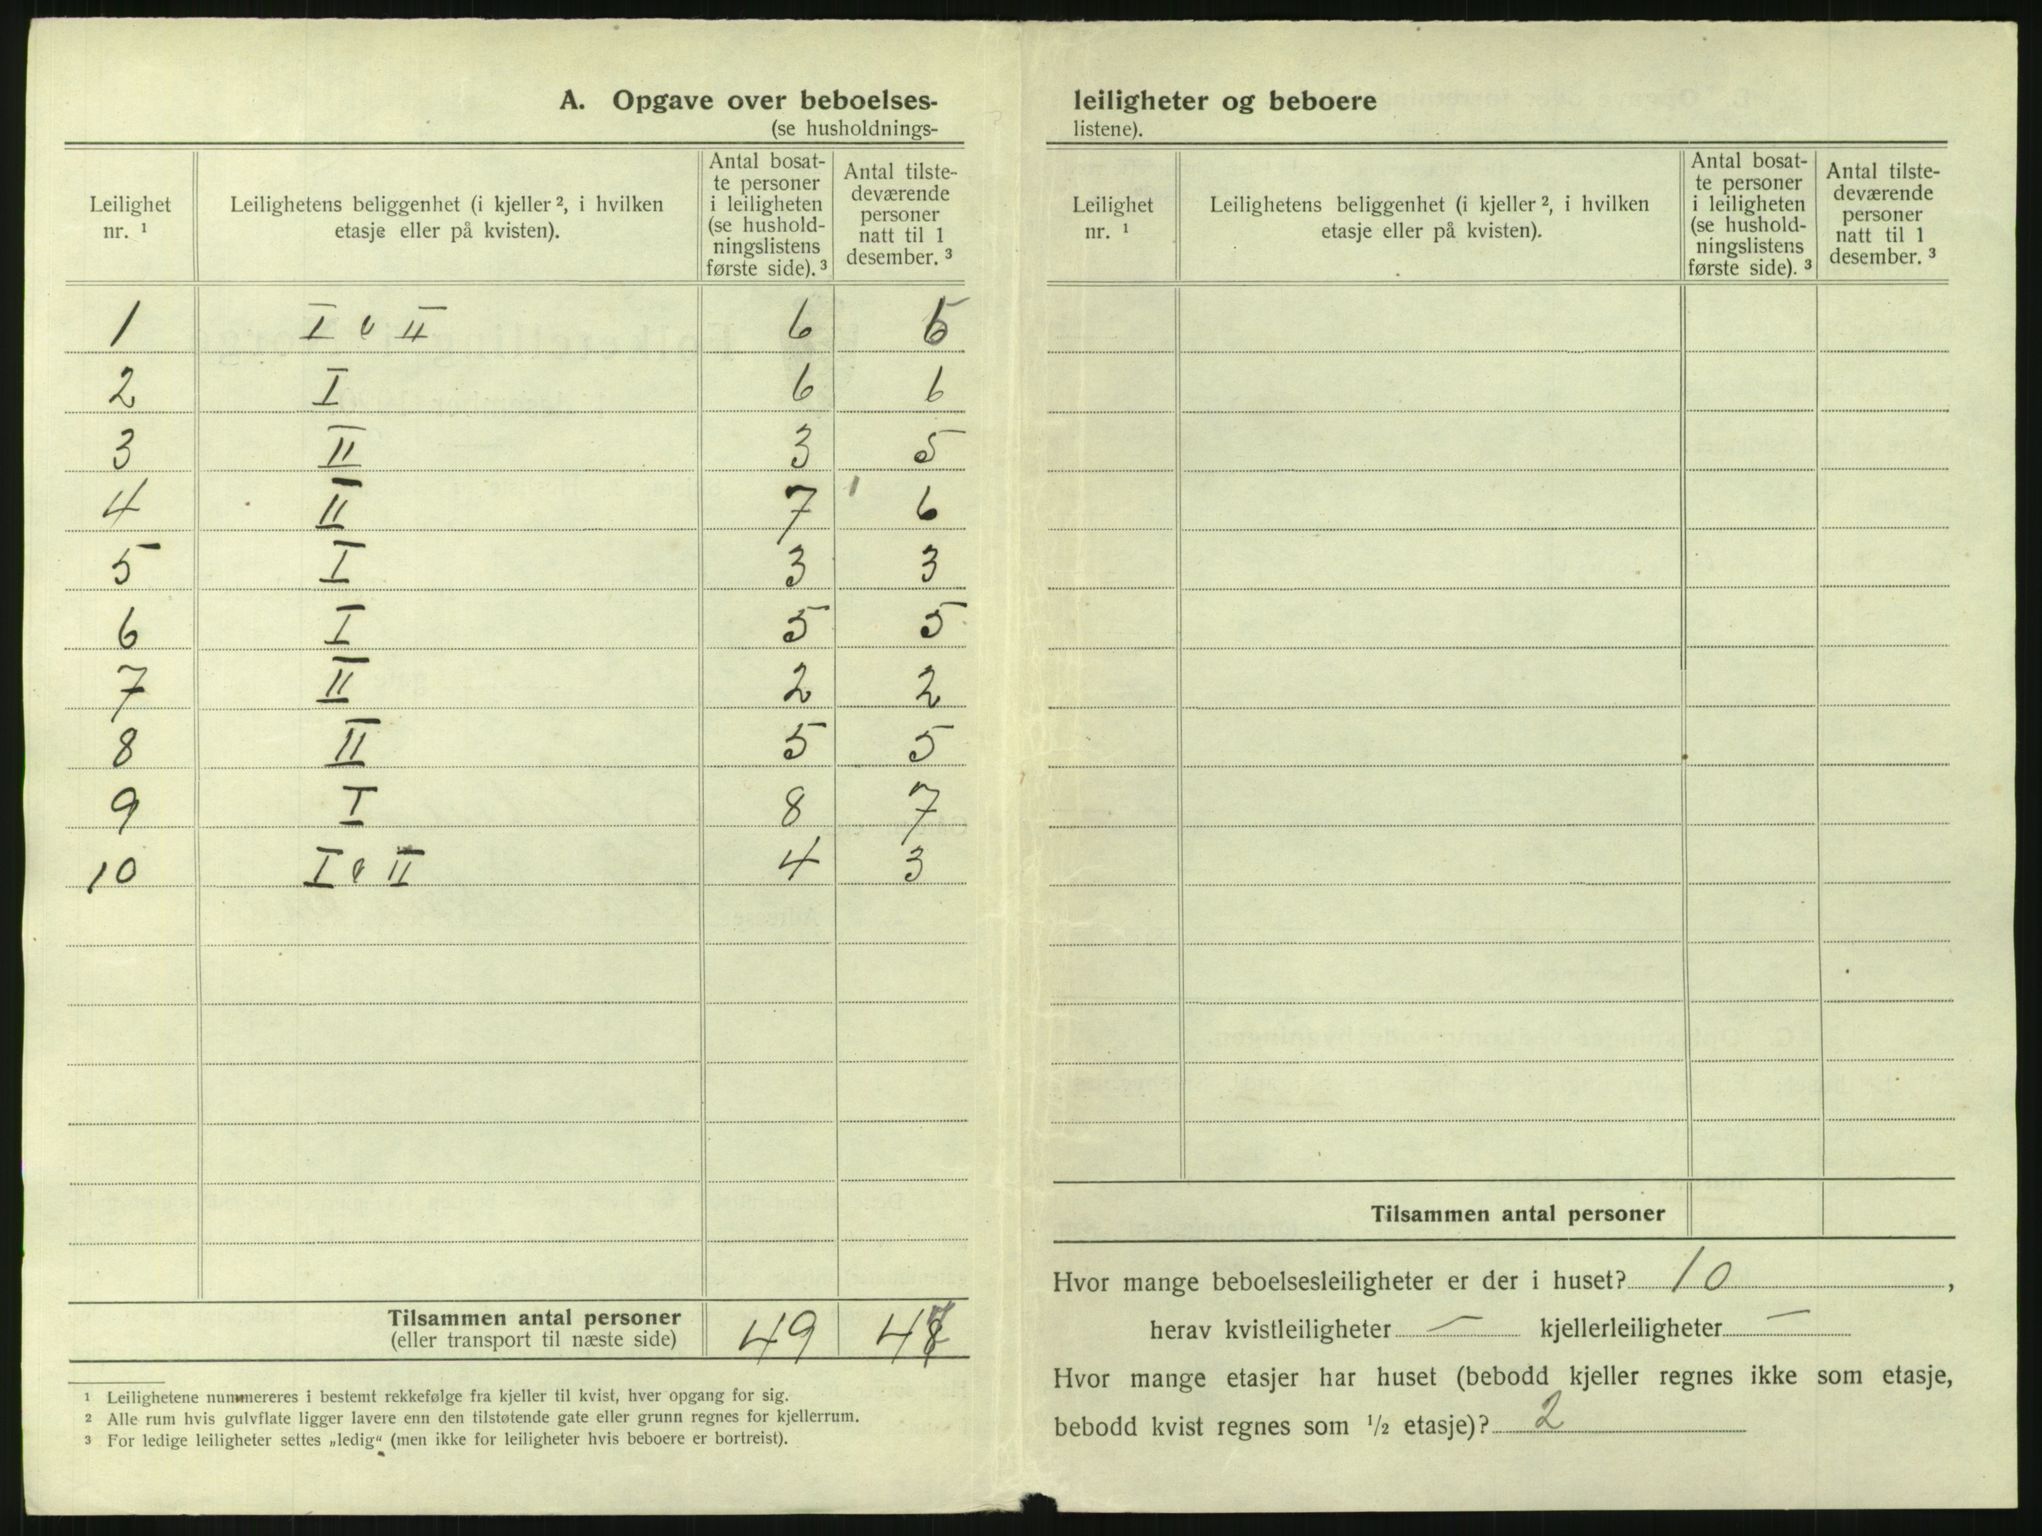 A. Opgave over beboelses-
(se husholdnings-
Leilighet nr. ¹ | Leilighetens beliggenhet (i kjeller ², i hvilken etasje eller på kvisten). | Antal bosatte personer i leiligheten (se husholdningslistens første side). ³ | Antal tilstedeværende personer natt til 1 desember. ³
1 | I o II | 6 | 5
2 | I | 6 | 6
3 | II | 3 | 5
4 | II | 7 | 6
5 | I | 3 | 3
6 | I | 5 | 5
7 | II | 2 | 2
8 | II | 5 | 5
9 | I | 8 | 7
10 | I o II | 4 | 3
Tilsammen antal personer
(eller transport til næste side) | 49 | 47
¹ Leilighetene nummereres i bestemt rekkefølge fra kjeller til kvist, hver opgang for sig.
² Alle rum hvis gulvflate ligger lavere enn den tilstøtende gate eller grunn regnes for kjellerrum.
³ For ledige leiligheter settes „ledig“ (men ikke for leiligheter hvis beboere er bortreist).
leiligheter og beboere
listene).
Leilighet nr. ¹ | Leilighetens beliggenhet (i kjeller ², i hvilken etasje eller på kvisten). | Antal bosatte personer i leiligheten (se husholdningslistens første side). ³ | Antal tilstedeværende personer natt til 1 desember. ³
Tilsammen antal personer
Hvor mange beboelsesleiligheter er der i huset? 10 ,
herav kvistleiligheter — kjellerleiligheter —
Hvor mange etasjer har huset (bebodd kjeller regnes ikke som etasje,
bebodd kvist regnes som ½ etasje)? 2